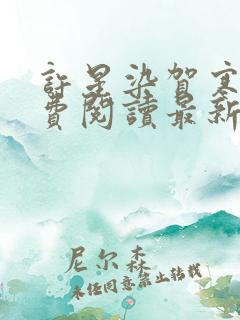 許星染賀寒
費閱讀最新
尼尔森
未经同意禁止转载